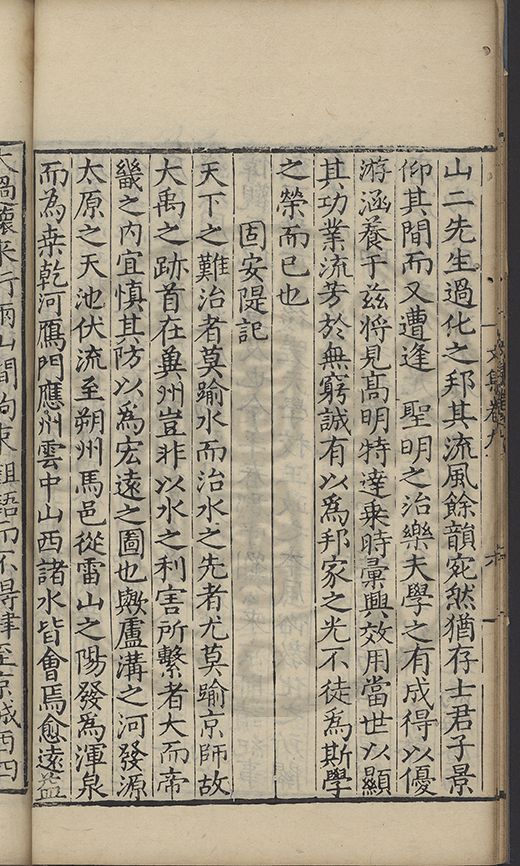 山二先生過化之邦其流風餘韻宛然猶存士君子景
仰其間而又遭逢　聖明之治樂夫學之有成得以優
游涵養于兹將見髙明特達乗時彚興效用當世以顯
其功業流芳於無窮誠有以為邦家之光不徒為斯學
之榮而已也
固安隄記
天下之難治者莫踰水而治水之先者尤莫踰京師故
大禹之跡首在兾州豈非以水之利害所繫者大而帝
畿之内宜慎其防以為宏遠之圖也歟盧溝之河發源
太原之天池伏流至朔州馬邑從雷山之陽發為渾泉
而為桒乾河鴈門應州雲中山西諸水皆會焉愈遠益
大過懷來行兩山間拘束齟齬而不得肆至京城西四